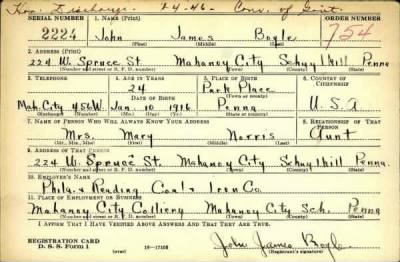 Hon. Discharge 2-4-46- Conv. of Govt.
SERIAL NUMBER 1. NAME (Print) ORDER NUMBER
2224 John James Boyle 754
(First) (Middle) (Last)
2. ADDRESS (Print)
224 W. Spruce St. Mahanoy City Schuylkill Penna
(Number and street or R. F. D. number) (Town) (County) (State)
3. TELEPHONE 4. AGE IN YEARS 5. PLACE OF BIRTH 6. COUNTRY OF CITIZENSHIP
24 Park Place
DATE OF BIRTH (Town or county)
Mah. City 456W Jan. 10 1916 Penna U.S.A
(Exchange) (Number) (Mo.) (Day) (Yr.) (State or country)
7. NAME OF PERSON WHO WILL ALWAYS KNOW YOUR ADDRESS 8. RELATIONSHIP OF THAT PERSON
Mrs. Mary Norris Aunt
(Mr., Mrs., Miss) (First) (Middle) (Last)
9. ADDRESS OF THAT PERSON
224 W. Spruce St. Mahanoy City Schuylkill Penna.
(Number and street or R. F. D. number) (Town) (County) (State)
10. EMPLOYER'S NAME
Phila. & Reading Coal & Iron Co.
11. PLACE OF EMPLOYMENT OR BUSINESS
Mahanoy City Colliery Mahanoy City Sch. Penna
(Number and street or R. F. D. number) (Town) (County) (State)
I AFFIRM THAT I HAVE VERIFIED ABOVE ANSWERS AND THAT THEY ARE TRUE.
REGISTRATION CARD
D. S. S. Form 1 (over) 16—17105 John James Boyle
(Registrant's signature)